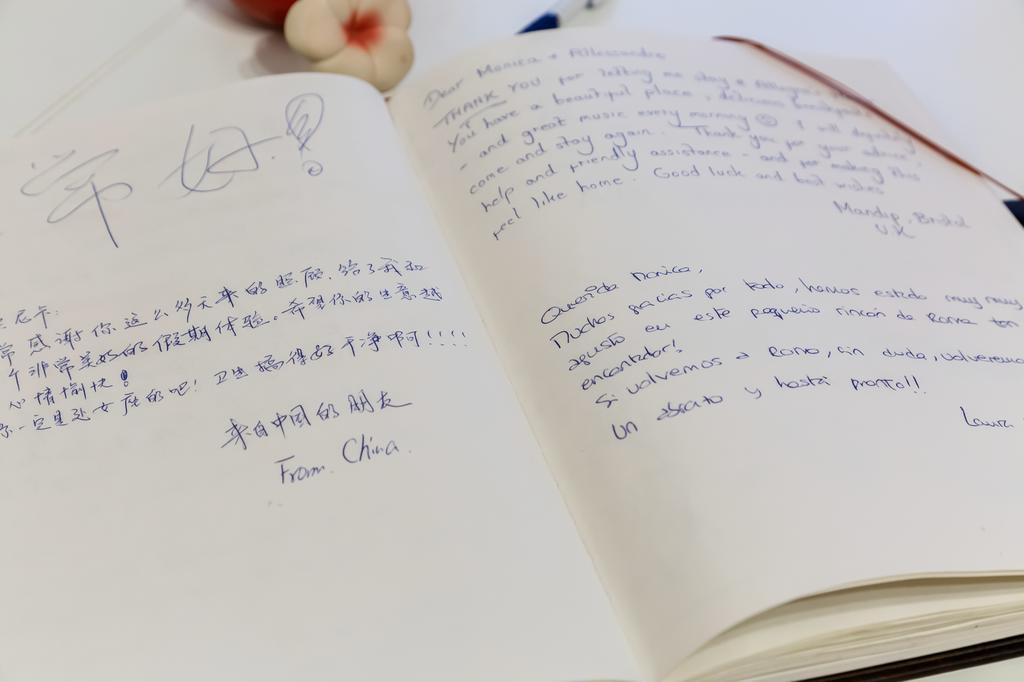 常 好!
尼卡:
常感谢你这么多天来的照顾,给了我和
个非常美好的假期体验。希望你的生意越
心情愉快!
一定是处女座的吧! 卫生搞得好干净啊!!!!
来自中国的朋友
From. China.
Dear Monica + Allessandro
THANK YOU for letting me stay @
You have a beautiful place, delicious breakfast
- and great music every morning ☺ I will definitely
come and stay again. Thank you for your advice,
help and friendly assistance - and for making this
feel like home. Good luck and best wishes
Mandip, Bristol
U.K
Querida Monica,
Muchas gracias por todo, hemos estado muy muy
agusto en este pequeño rincón de Roma tan
encantador!
Si volvemos a Roma, sin duda, volveremos
Un abrazo y hasta pronto!!
Laura